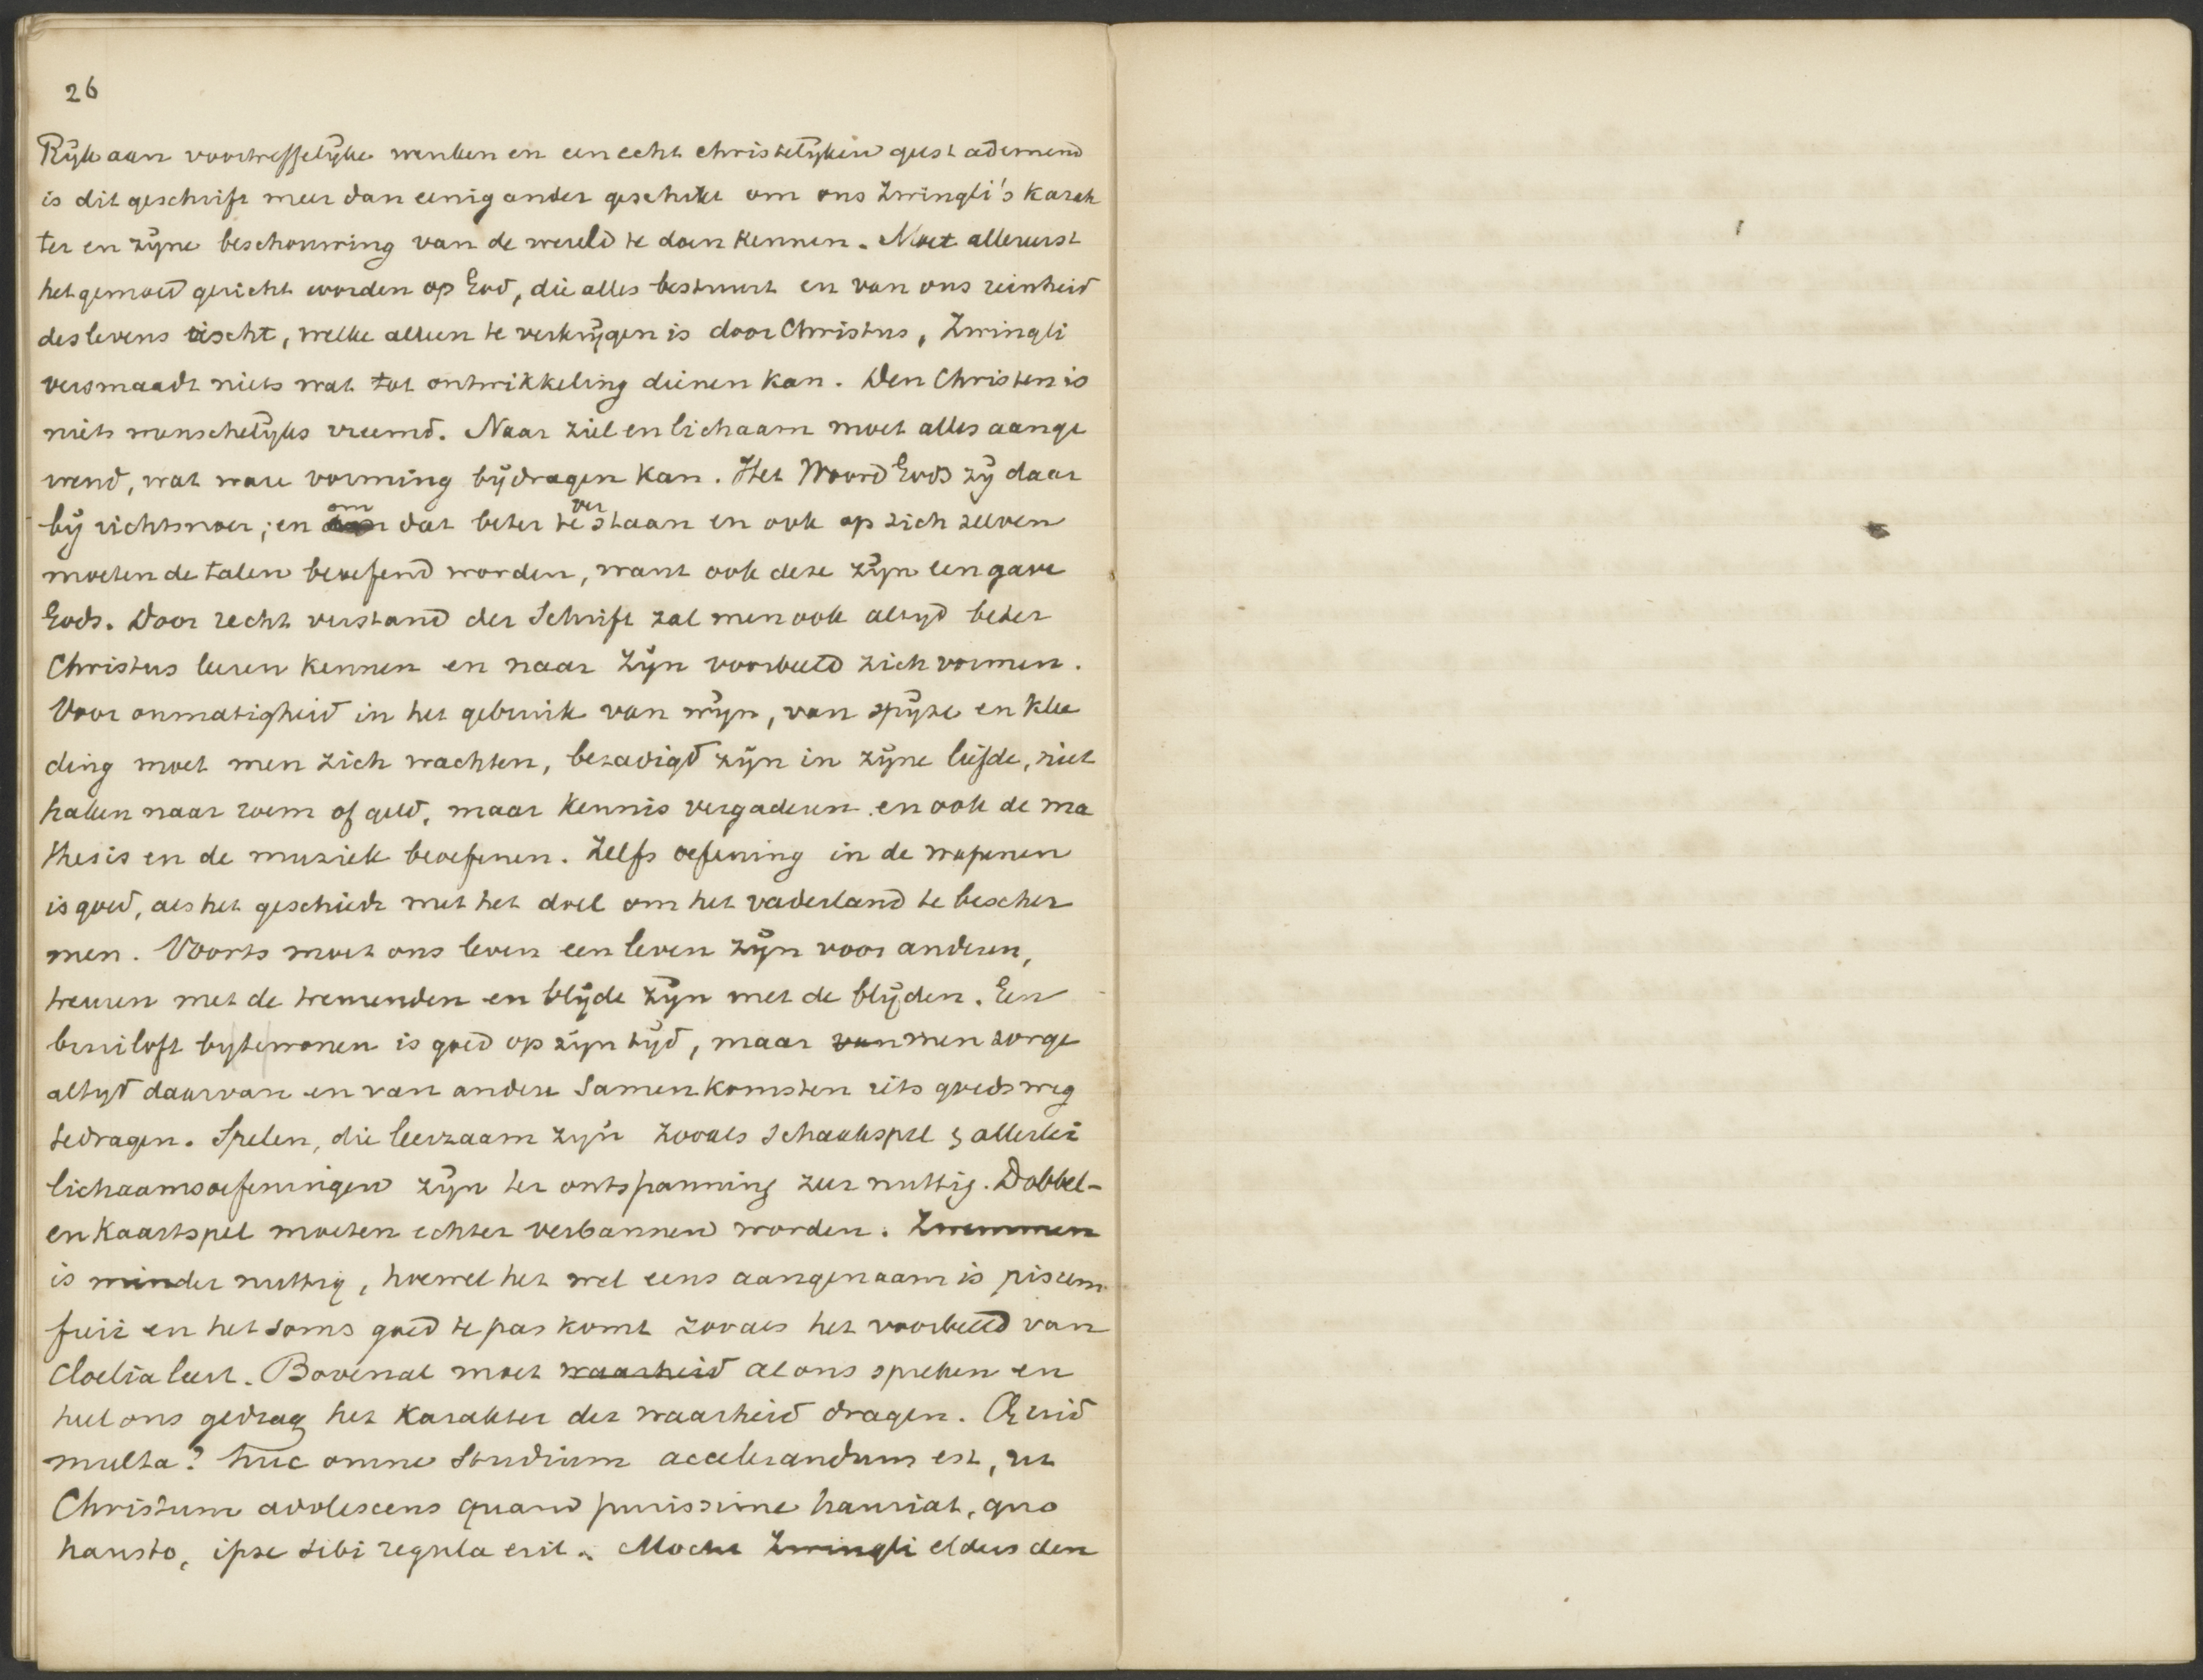 26
Rijk aan voortreffelijke wenken en een echt christelijken geest ademend
is dit geschrift meer dan eenig ander geschikt om ons Zwingli's karak
ter en zijne beschouwing van de wereld te doen kennen. Moet allereerst
het gemoed gericht worden op God, die alles bestuurt en van ons reinheid
des levens eischt, welke alleen te verkrijgen is door Christus, Zwingli
versmaadt niets wat tot ontwikkeling dienen kan. Den Christen is
niets menschelijks vreemd. Naar ziel en lichaam moet alles aange
wend, wat ware vorming bijdragen kan. Het Woord Gods zij daar
bij richtsnoer; en om dat beter te verstaan en ook op zich zelven
moeten de talen beoefend worden, want ook deze zijn een gave
Gods. Door recht verstand der Schrift zal men ook altijd beter
Christus leeren kennen en naar Zijn voorbeeld zich vormen.
Voor onmatigheid in het gebruik van wijn, van spijze en klee
ding moet men zich wachten, bezadigd zijn in zijne liefde, niet
haken naar roem of geld, maar kennis vergaderen en ook de ma
thesis en de muziek beoefenen. Zelfs oefening in de wapenen
is goed, als het geschiedt met het doel om het vaderland te bescher
men. Voorts moet ons leven een leven zijn voor anderen,
treuren met de treurenden en blijde zijn met de blijden. Een
bruiloft bij te wonen is goed op zijn tijd, maar van men zorge
altijd daarvan en van andere samenkomsten iets goeds weg
te dragen. Spelen, die leerzaam zijn zooals schaakspel & allerlei
lichaamsoefeningen zijn ter ontspanning zeer nuttig. Dobbel-
en kaartspel moeten echter verbannen worden. Zwemmen
is minder nuttig, hoewel het wel eens aangenaam is piscem
fieri en het soms goed te pas komt zooals het voorbeeld van
Cloelia leert. Bovenal moet waarheid al ons spreken en
heel ons gedrag het karakter der waarheid dragen. Quid
multa? huc omne studium accelerandum est, ut
Christum adolescens quam purissime hauriat, quo
hausto, ipse sibi regula erit. Mocht Zwingli elders den